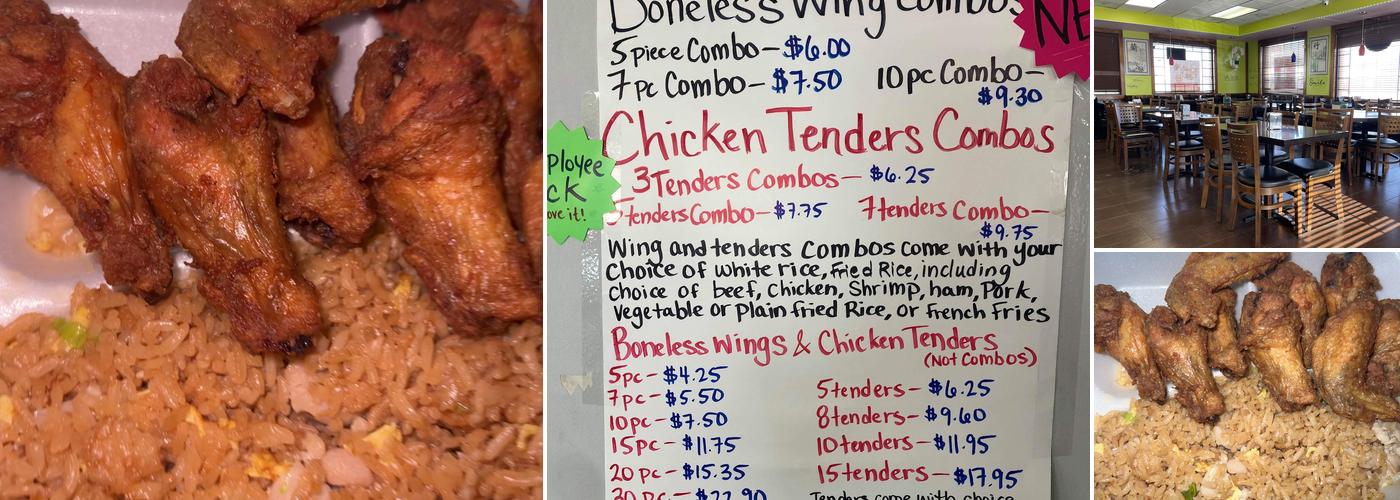 Boneless Wing Combos
5 piece Combo - $6.00
7 pc Combo - $7.50
10 pc Combo - $9.30
NE
Chicken Tenders Combos
ployee
ck
ove it!
3 Tenders Combos - $6.25
5 tenders Combo - $7.75
7 tenders Combo - $9.75
Wing and tenders Combos come with your
Choice of white rice, Fried Rice, including
Choice of beef, chicken, Shrimp, ham, Pork,
Vegetable or Plain fried Rice, or French Fries
Boneless Wings & Chicken Tenders
(Not Combos)
5pc - $4.25
7pc - $5.50
10pc - $7.50
15pc - $11.75
20 pc - $15.35
30 pc - $22.90
5 tenders - $6.25
8 tenders - $9.60
10 tenders - $11.95
15 tenders - $17.95
Tenders come with choice